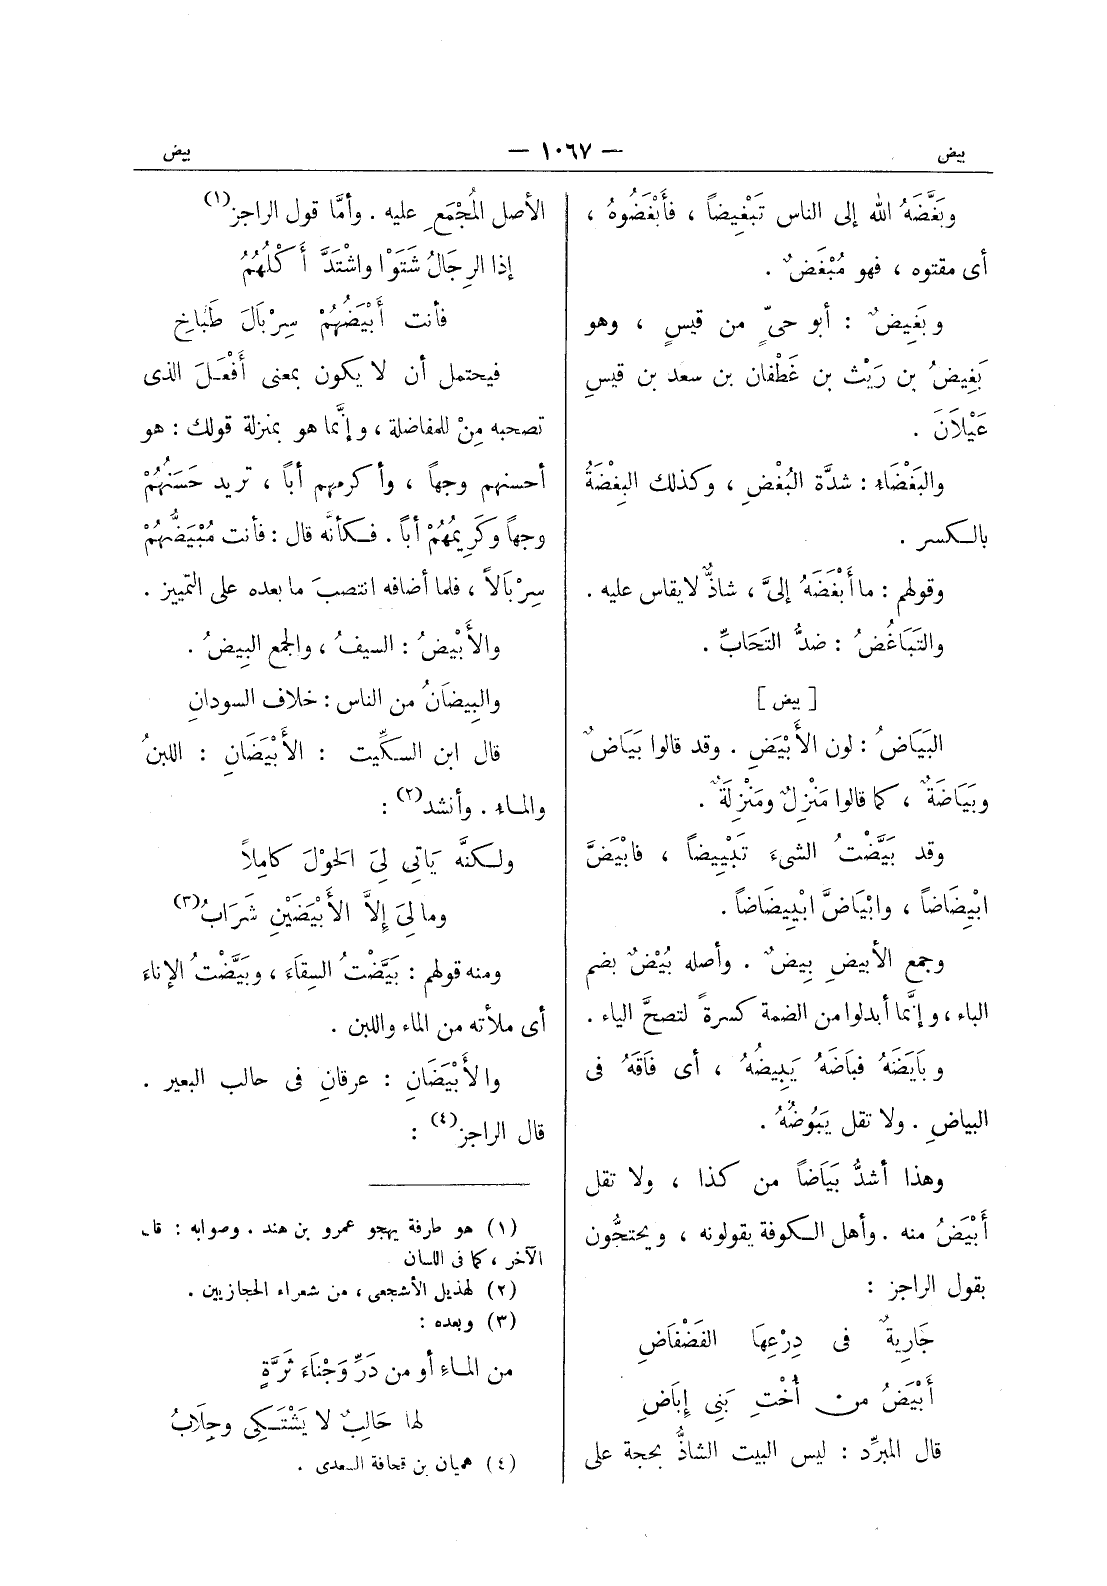 بيض — ١٠٦٧ — بيض
وبَغَّضَهُ الله إلى الناس تَبْغِيضاً ، فأَبْغَضُوهُ ،
أى مقتوه ، فهو مُبْغَضٌ .
وبَغِيضٌ : أبو حىٍّ من قيسٍ ، وهو
بَغِيضُ بن رَيْث بن غَطْفان بن سعد بن قيسِ
عَيْلَانَ .
والبَغْضَاء : شدَّة البُغْضِ ، وكذلك البِغْضَةُ
بالكسر .
وقولهم : ما أَبْغَضَهُ إلىَّ ، شاذٌّ لا يقاس عليه .
والتَبَاغُضُ : ضدُّ التَحَابِّ .
[ بيض ]
البَيَاضُ : لون الأَبْيَضِ . وقد قالوا بَيَاضٌ
وبَيَاضَةٌ ، كما قالوا مَنْزِلٌ ومَنْزِلَةٌ .
وقد بَيَّضْتُ الشىءَ تَبْيِيضاً ، فابْيَضَّ
ابْيِضَاضاً ، وابْيَاضَّ ابْيِيضَاضاً .
وجمع الأبيضِ بِيضٌ . وأصله بُيْضٌ بضم
الباء ، وإنَّما أبدلوا من الضمة كسرةً لتصحَّ الياء .
وبَايَضَهُ فبَاضَهُ يَبِيضُهُ ، أى فَاقَهُ فى
البياضِ . ولا تقل يَبُوضُهُ .
وهذا أشدُّ بَيَاضاً من كذا ، ولا تقل
أَبْيَضُ منه . وأهل الكوفة يقولونه ، ويحتجُّون
بقول الراجز :
جَارِيةٌ فى دِرْعِهَا الفَضْفَاضِ
أَبْيَضُ من أُخْتِ بَنِى إِبَاضِ
قال المبرِّد : ليس البيت الشاذُّ بحجة على
الأصل المُجْمَعِ عليه . وأمَّا قول الراجز(١)
إذا الرِجَالُ شَتَوْا واشْتَدَّ أَكْلُهُمُ
فأنت أَبْيَضُهُمْ سِرْبَالَ طَبَّاخِ
فيحتمل أن لا يكون بمعنى أَفْعَلَ الذى
تصحبه مِنْ للمفاضلة ، وإنَّما هو بمنزلة قولك : هو
أحسنهم وجهاً ، وأكرمهم أباً ، تريد حَسَنُهُمْ
وجهاً وكَرِيمُهُمْ أباً . فكأنَّه قال : فأنت مُبْيَضُّهُمْ
سِرْبَالاً ، فلما أضافه انتصبَ ما بعده على التمييز .
والأَبْيَضُ : السيفُ ، والجمع البِيضُ .
والبِيضَانُ من الناس : خلاف السودانِ
قال ابن السكِّيت : الأَبْيَضَانِ : اللبنُ
والماء . وأنشد(٢) :
ولكنَّه يَاتِى لِىَ الحَوْلَ كامِلاً
وما لِىَ إِلاَّ الأَبْيَضَيْنِ شَرَابُ(٣)
ومنه قولهم : بَيَّضْتُ السِقَاءَ ، وبَيَّضْتُ الإناءَ
أى ملأته من الماء واللبن .
والأَبْيَضَانِ : عرقانِ فى حالب البعير .
قال الراجز(٤) :
(١) هو طرفة يهجو عمرو بن هند . وصوابه : قال
الآخر ، كما فى اللسان
(٢) لهذيل الأشجعى ، من شعراء الحجازيين .
(٣) وبعده :
من الماءِ أو من دَرِّ وَجْنَاءَ ثَرَّةٍ
لها حَالِبٌ لا يَشْتَكِى وحِلَابُ
(٤) هميان بن قحافة السعدى .